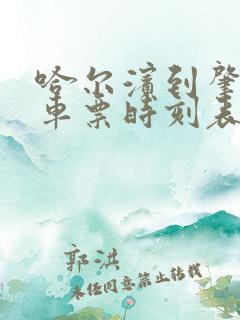 哈尔滨到肇
车票时刻表
郭洪
未经同意禁止转载